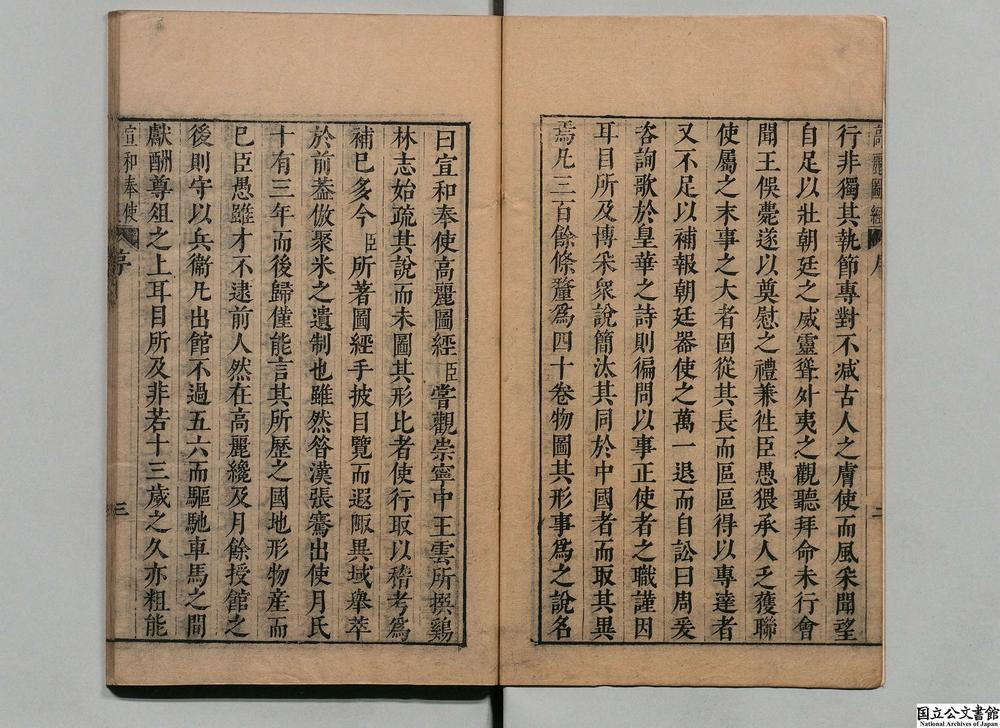 高麗圖經 序 二
行非獨其執節專對不减古人之膚使而風采聞望
自足以壯朝廷之威靈聳外夷之觀聽拜命未行會
聞王俁薨遂以奠慰之禮兼徃臣愚猥承人乏獲聯
使屬之末事之大者固從其長而區區得以專達者
又不足以補報朝廷器使之萬一退而自訟曰周爰
咨詢歌於皇華之詩則徧問以事正使者之職謹因
耳目所及博采衆說簡汰其同於中國者而取其異
焉凡三百餘條釐爲四十卷物圖其形事爲之說名
曰宣和奉使高麗圖經臣嘗觀崇寧中王雲所撰鷄
林志始疏其說而未圖其形比者使行取以稽考爲
補巳多今臣所著圖經手披目覽而遐陬異域舉萃
於前葢倣聚米之遺制也雖然昝漢張騫出使月氏
十有三年而後歸僅能言其所歷之國地形物産而
巳臣愚雖才不逮前人然在高麗纔及月餘授館之
後則守以兵衞凡出館不過五六而驅馳車馬之間
獻酬尊俎之上耳目所及非若十三歲之久亦粗能
宣和奉使 序 三
国立公文書館
National Archives of Japan